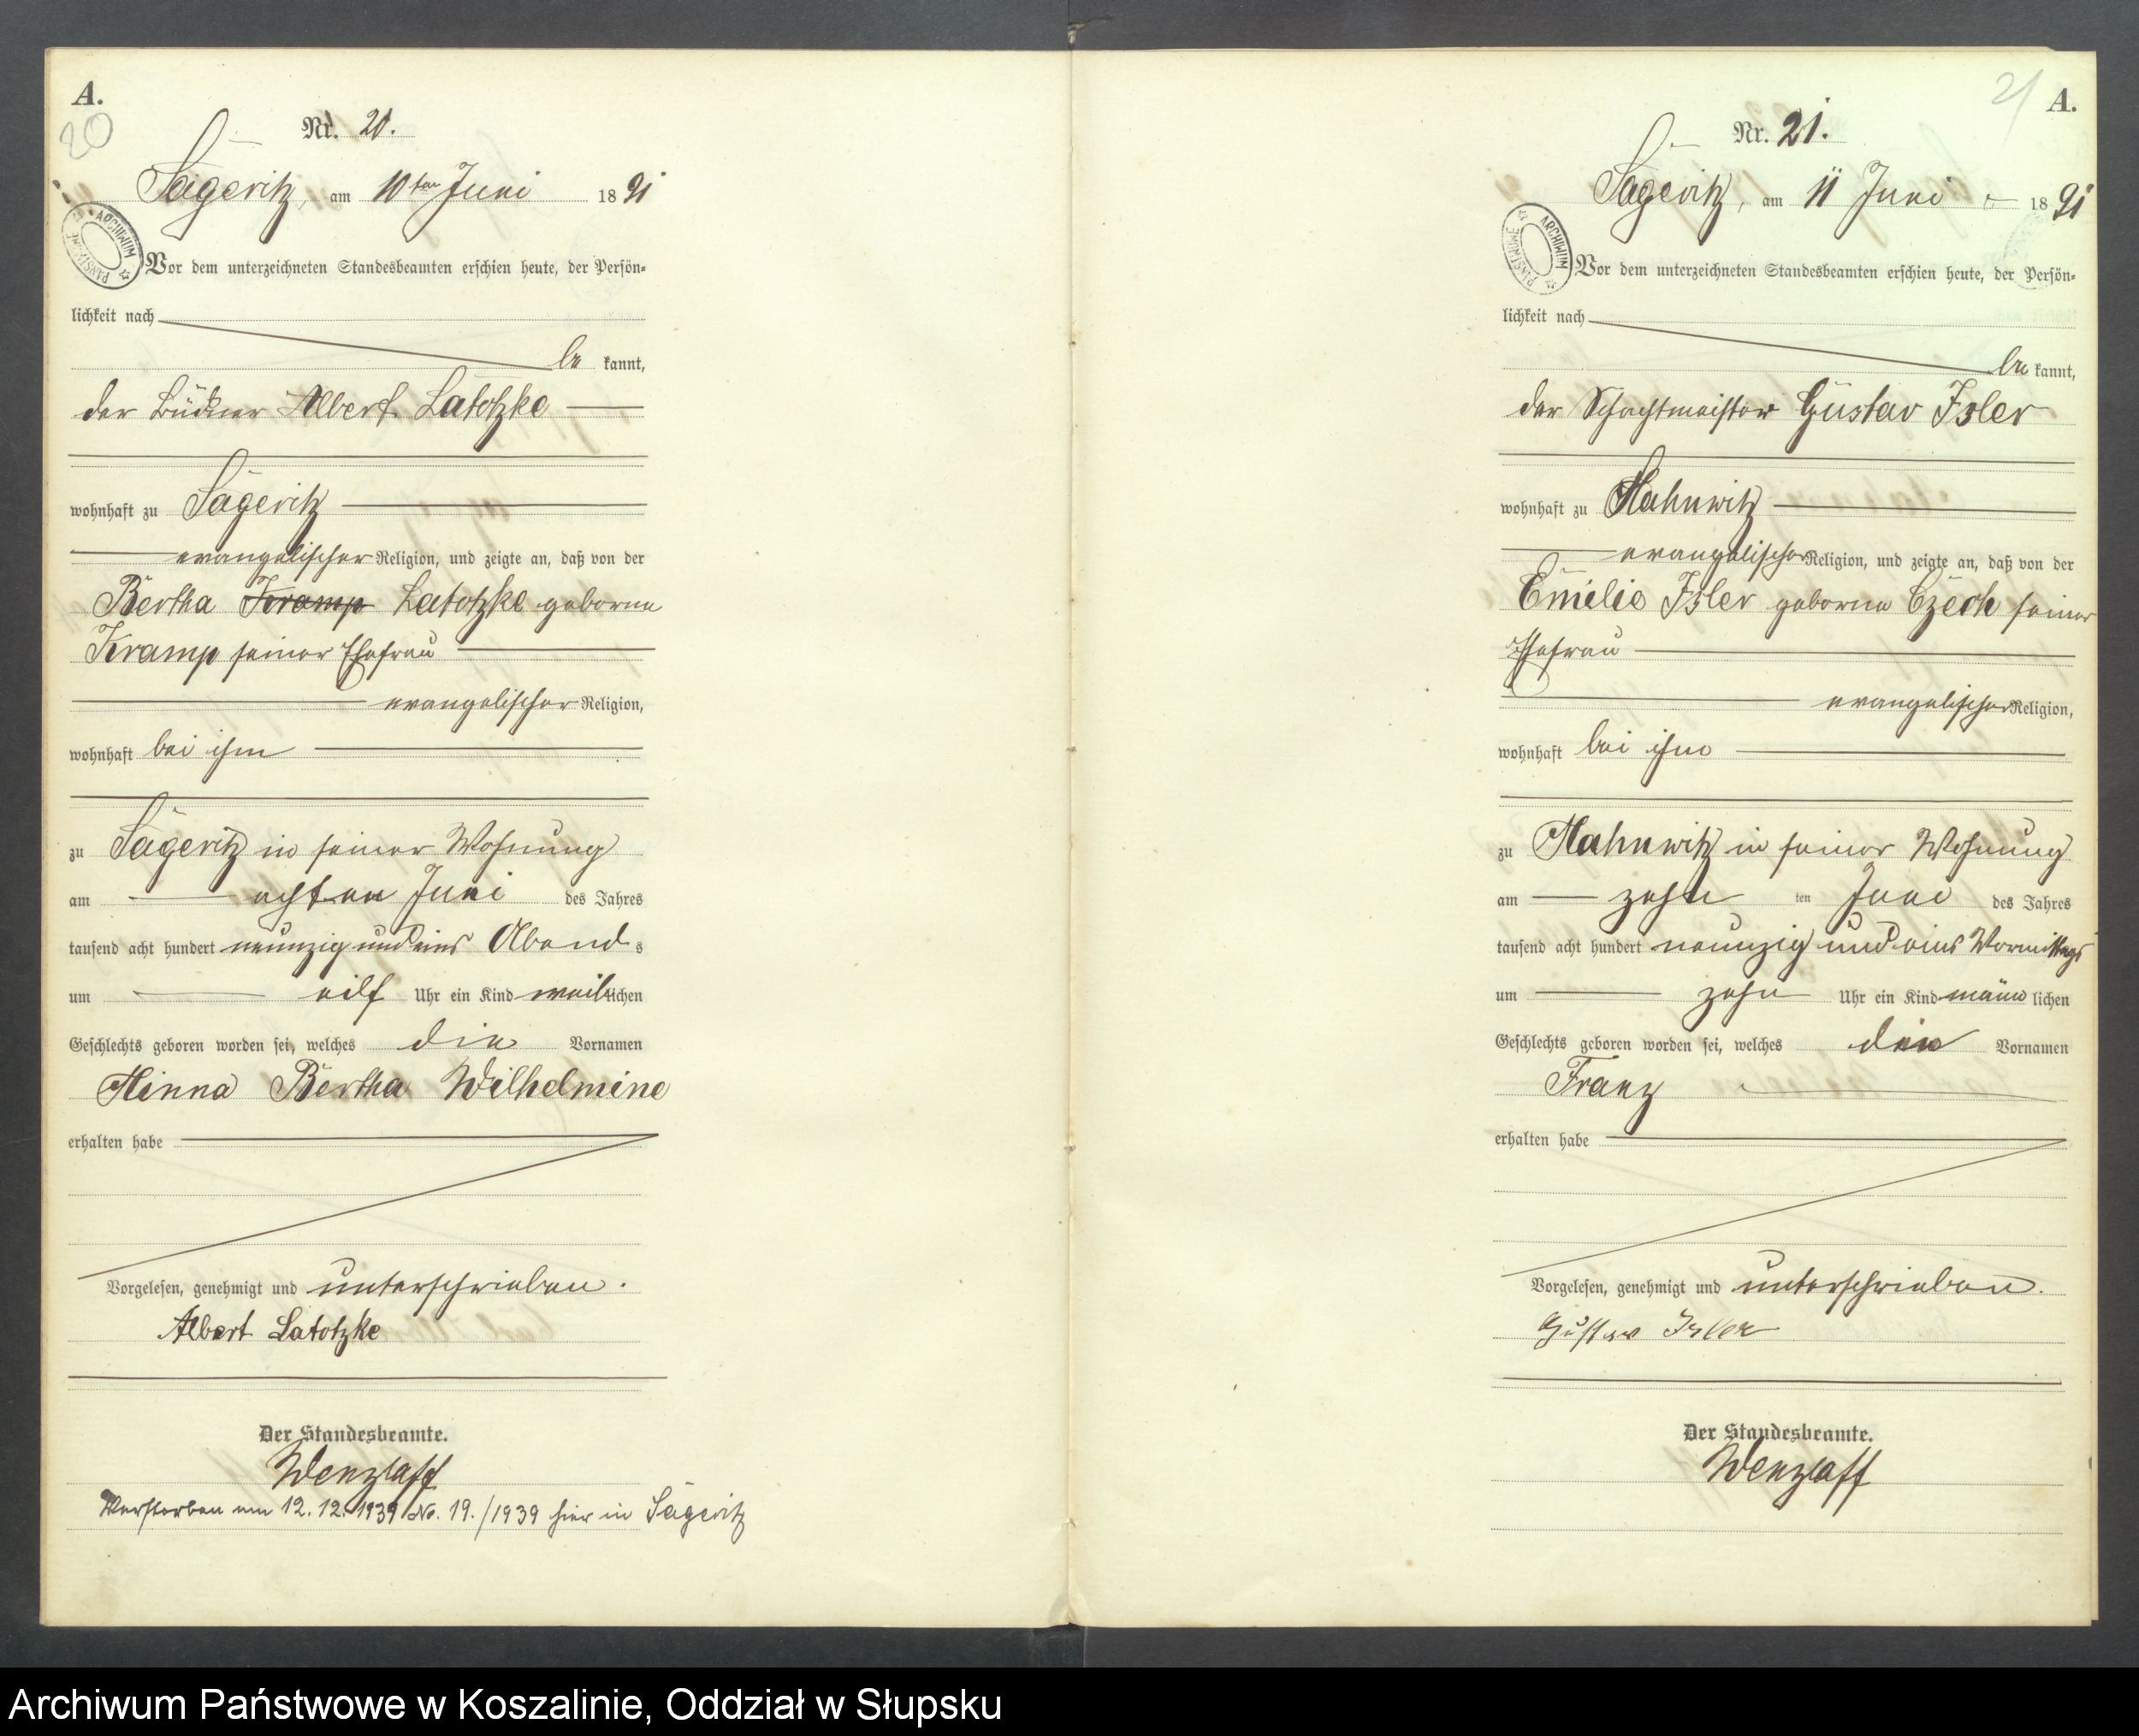 A.
20
Nr. 20.
Sageritz, am 10ten Juni 1891
Vor dem unterzeichneten Standesbeamten erschien heute, der Persön-
lichkeit nach
be kannt,
der Büdner Albert Latotzke
wohnhaft zu Sageritz
evangelischer Religion, und zeigte an, daß von der
Bertha Kramp Latotzke geborne
Kramp seiner Ehefrau
evangelischer Religion,
wohnhaft bei ihm
zu Sageritz in seiner Wohnung
am achten Juni des Jahres
tausend acht hundert neunzig und eins Abends
um eilf Uhr ein Kind weiblichen
Geschlechts geboren worden sei, welches die Vornamen
Minna Bertha Wilhelmine
erhalten habe
Vorgelesen, genehmigt und unterschrieben.
Albert Latotzke
Der Standesbeamte.
Wenzlaff
Verstorben am 12.12.1939 No. 19./1939 hier in Sageritz
ARCHIWUM PAŃSTWOWE
21 A.
Nr. 21.
Sageritz, am 11 Juni 1891
Vor dem unterzeichneten Standesbeamten erschien heute, der Persön-
lichkeit nach
be kannt,
der Schachtmeister Gustav Isler
wohnhaft zu Mahnwitz
evangelischer Religion, und zeigte an, daß von der
Emilie Isler geborne Czech seiner
Ehefrau
evangelischer Religion,
wohnhaft bei ihm
zu Mahnwitz in seiner Wohnung
am zehn ten Juni des Jahres
tausend acht hundert neunzig und eins Vormittags
um zehn Uhr ein Kind männlichen
Geschlechts geboren worden sei, welches den Vornamen
Franz
erhalten habe
Vorgelesen, genehmigt und unterschrieben.
Gustav Isler
Der Standesbeamte.
Wenzlaff
ARCHIWUM PAŃSTWOWE
Archiwum Państwowe w Koszalinie, Oddział w Słupsku